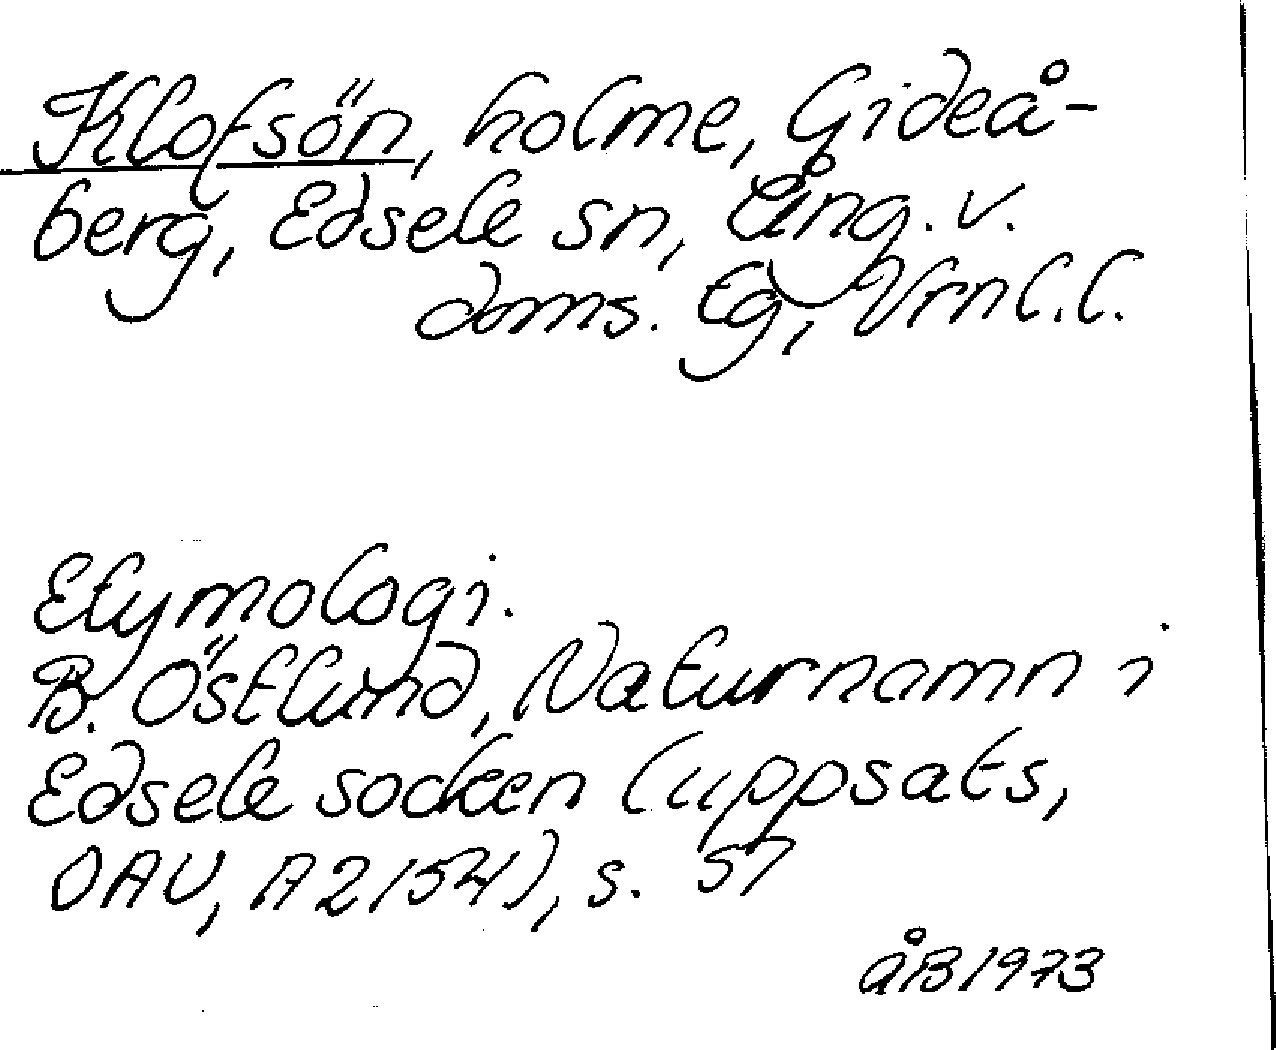 Klofsön, holme, Gideå-
berg, Edsele sn, Ång. v.
doms. tg, Vrnl.l.
Etymologi.
B. Östlund, Naturnamn i
Edsele socken (uppsats,
OAU, A2154), s. 57
åB1973